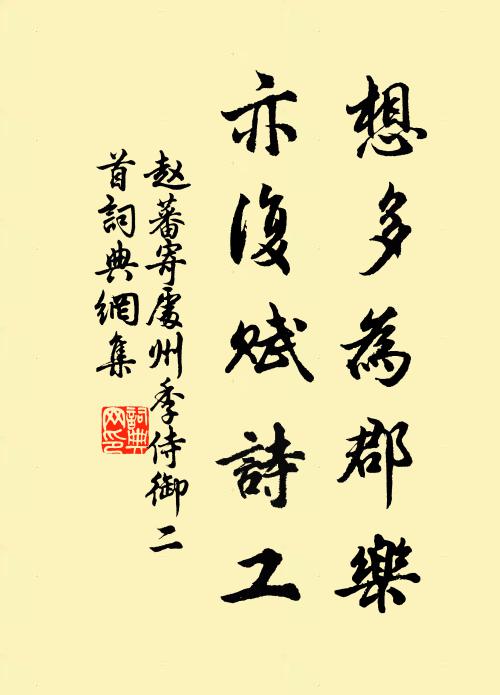 想多為郡樂
亦復賦詩工
赵蕃寄處州季侍御二
首詞典網集
詞典
网印